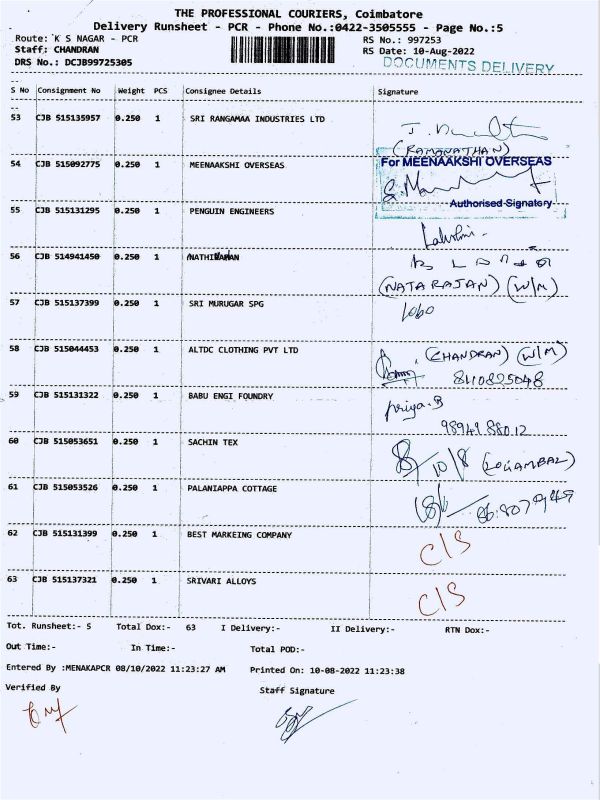 THE PROFESSIONAL COURIERS, Coimbatore
Delivery Runsheet - PCR - Phone No.:0422-3505555 - Page No.:5
Route: K S NAGAR - PCR
RS No.: 997253
Staff: CHANDRAN
RS Date: 10-Aug-2022
DRS No.: DCJB99725305
DOCUMENTS DELIVERY
S No Consignment No Weight PCS Consignee Details Signature
53 CJB 515135957 0.250 1 SRI RANGAMAA INDUSTRIES LTD
(RAMANATHAN)
54 CJB 515092775 0.250 1 MEENAAKSHI OVERSEAS
For MEENAAKSHI OVERSEAS
Authorised Signatory
55 CJB 515131295 0.250 1 PENGUIN ENGINEERS
Lakshmi.
56 CJB 514941450 0.250 1
(NATARAJAN) (W/M)
57 CJB 515137399 0.250 1 SRI MURUGAR SPG
58 CJB 515044453 0.250 1 ALTDC CLOTHING PVT LTD
(CHANDRAN) (W/M)
8110825048
59 CJB 515131322 0.250 1 BABU ENGI FOUNDRY
priya.B
98941 88012
60 CJB 515053651 0.250 1 SACHIN TEX
10/8 (LOGAMBAL)
61 CJB 515053526 0.250 1 PALANIAPPA COTTAGE
62 CJB 515131399 0.250 1 BEST MARKEING COMPANY
C/S
63 CJB 515137321 0.250 1 SRIVARI ALLOYS
C/S
Tot. Runsheet:- 5 Total Dox:- 63 I Delivery:- II Delivery:- RTN Dox:-
Out Time:- In Time:- Total POD:-
Entered By :MENAKAPCR 08/10/2022 11:23:27 AM Printed On: 10-08-2022 11:23:38
Verified By
Staff Signature